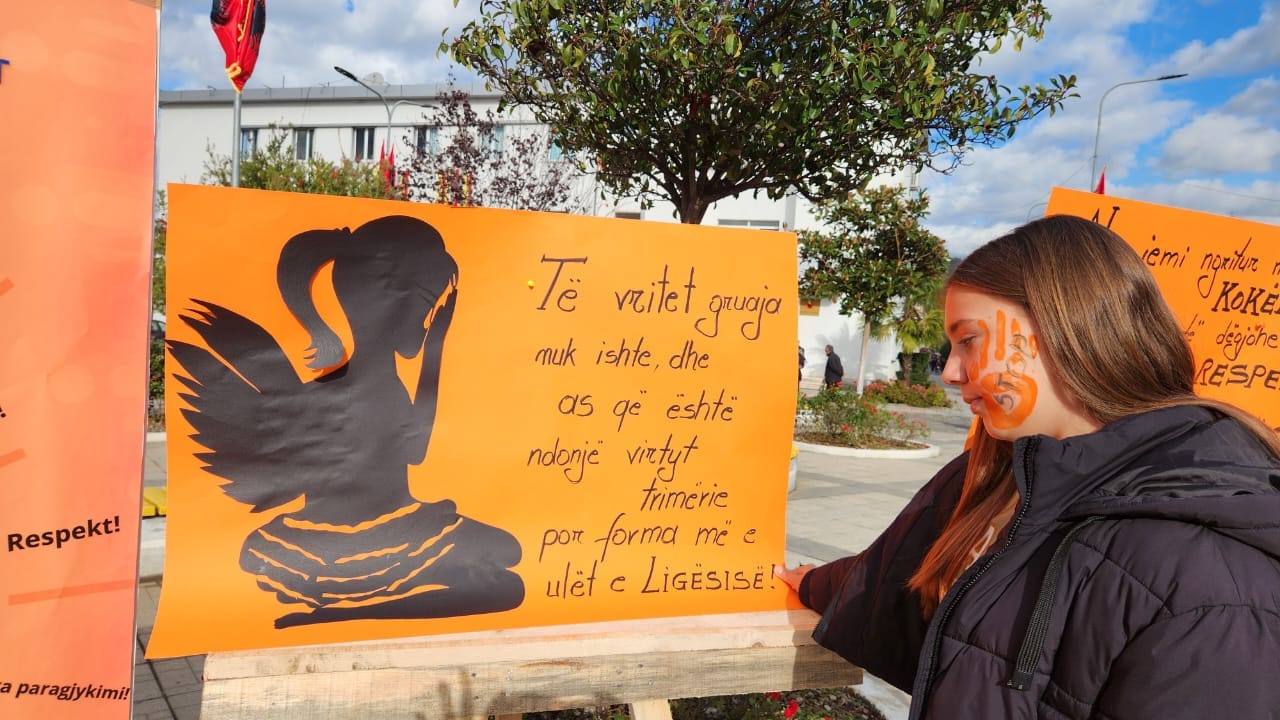 Respekt!
paragjykimi!
Të vritet gruaja
nuk ishte, dhe
as që është
ndonjë virtyt
trimërie
por forma më e
ulët e LIGËSISË!
jemi ngritur